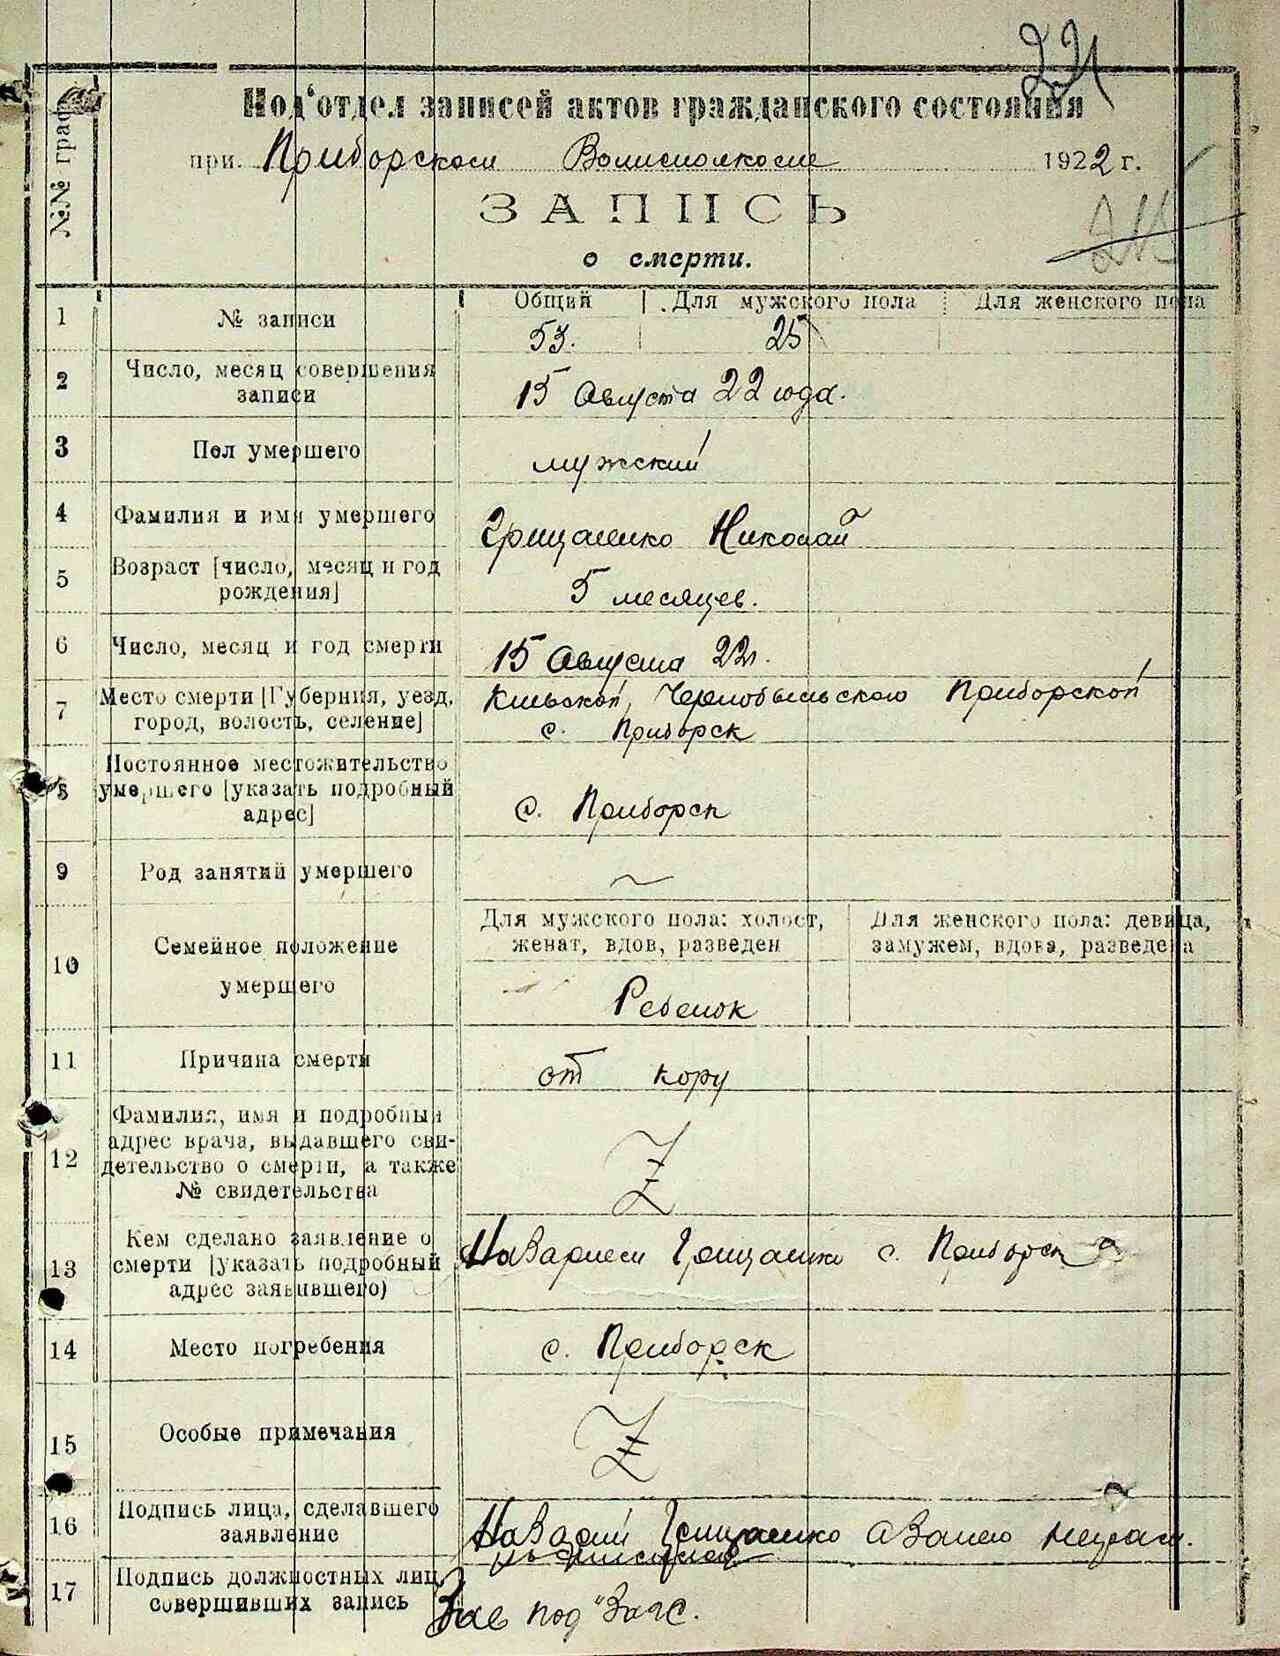 221
Под'отдел записей актов гражданского состояния
при Приборском Волисполкоме 1922 г.
ЗАПИСЬ
о смерти.
№№ граф
1 № записи Общий Для мужского пола Для женского пола
53. 25
2 Число, месяц совершения записи
15 Августа 22 года.
3 Пол умершего
мужский
4 Фамилия и имя умершего
Грищенко Николай
5 Возраст [число, месяц и год рождения]
5 месяцев.
6 Число, месяц и год смерти
15 Августа 22г.
7 Место смерти [Губерния, уезд, город, волость, селение]
Киевской, Чернобыльского Приборской
с. Приборск
8 Постоянное местожительство умершего [указать подробный адрес]
с. Приборск
9 Род занятий умершего
10 Семейное положение умершего
Для мужского пола: холост, женат, вдов, разведен
Для женского пола: девица, замужем, вдова, разведена
Ребенок
11 Причина смерти
от кору
12 Фамилия, имя и подробный адрес врача, выдавшего свидетельство о смерти, а также № свидетельства
Z
13 Кем сделано заявление о смерти [указать подробный адрес заявившего)
Грищенко с. Приборск
14 Место погребения
с. Приборск
15 Особые примечания
Z
16 Подпись лица, сделавшего заявление
Грищенко
17 Подпись должностных лиц, совершивших запись
Зав под"Загс.